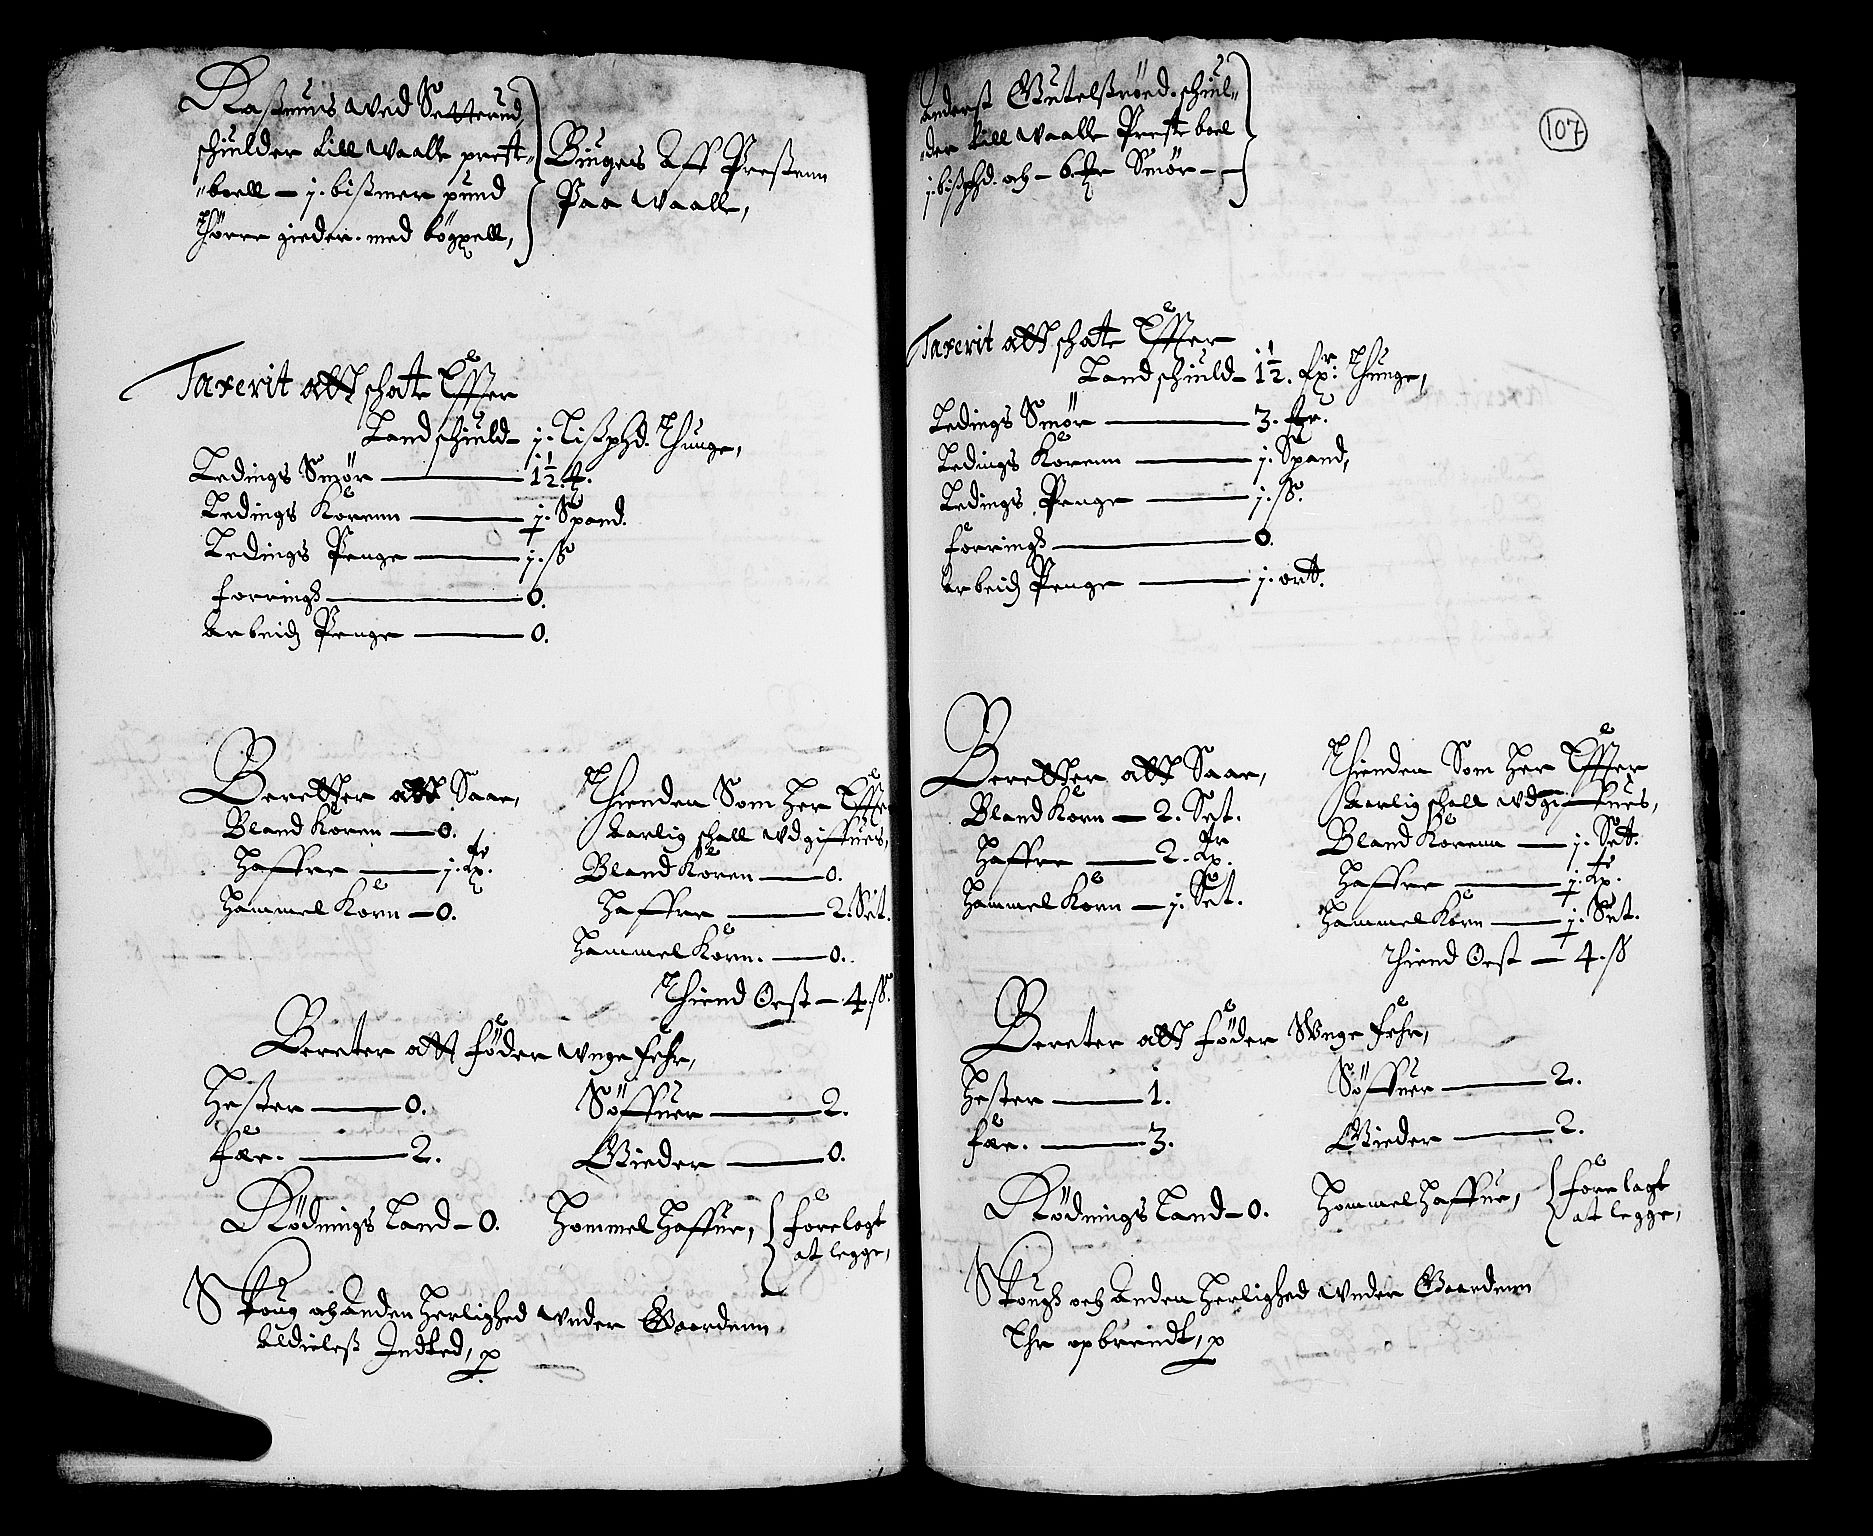 Rasmus wed Setterind
schiulder till Waalle prest-
"boell — j. bissmer pund
Thørre gieder. med bøgxell,
Biuges Aff Presten
Paa Waalle,
Taxerit att schatte Effter
Landschiuld — j. Lisspd. Thunge,
Ledings Smør — 1½.
Ledings Korenn — j. Spand.
Ledings Penge — j. ß
forrings — 0.
Arbeids Penge — 0.
Beretther att Saae,
Bland Koren — 0.
Haffre — j.
Hammel Korn — 0.
Thienden Som Her Effter
Aarlig schall wdgiffues,
Bland Koren — 0.
Haffre — 2. Set.
Hammel Korn. — 0.
Thiend Oest — 4. ß.
Bereter att føder wnge fehr,
Hester — 0.
fæe. — 2.
Søffuer — 2.
Gieder — 0.
Rødnings Land — 0.
Hommel Haffue,
forelagt
at legge,
Skoug och Anden Herlighed wnder Gaardenn
Aldieless Indted,
107
Anderss Gutelssrøed. schiul-
"der till Waalle Preste boel
j. bisspd. och — 6. Smør —
Taxerit att schatte Effter
Landschiuld — 1½. Thunge,
Ledings Smør — 3.
Ledings Korenn — j. Spand,
Ledings Penge — j. ß.
forrings — 0.
Arbeids Penge — j. ort.
Beretther att Saae,
Bland Korn — 2. Set.
Haffre — 2.
Hammel Korn — j. Set.
Thienden Som Her Effter
Aarlig schall wdgiffues,
Bland Korenn — j. Set.
Haffre — j.
Hammel Korn — j. Set.
Thiend Oest — 4. ß
Bereter att føder Wnge fehr,
Hester — 1.
fæe. — 3.
Søffuer — 2.
Gieder — 2.
Rødnings Land — 0.
Hommel Haffue,
forelagt
at legge,
Skougs och Anden Herlighed wnder Gaardenn
Ehr opbreindt,